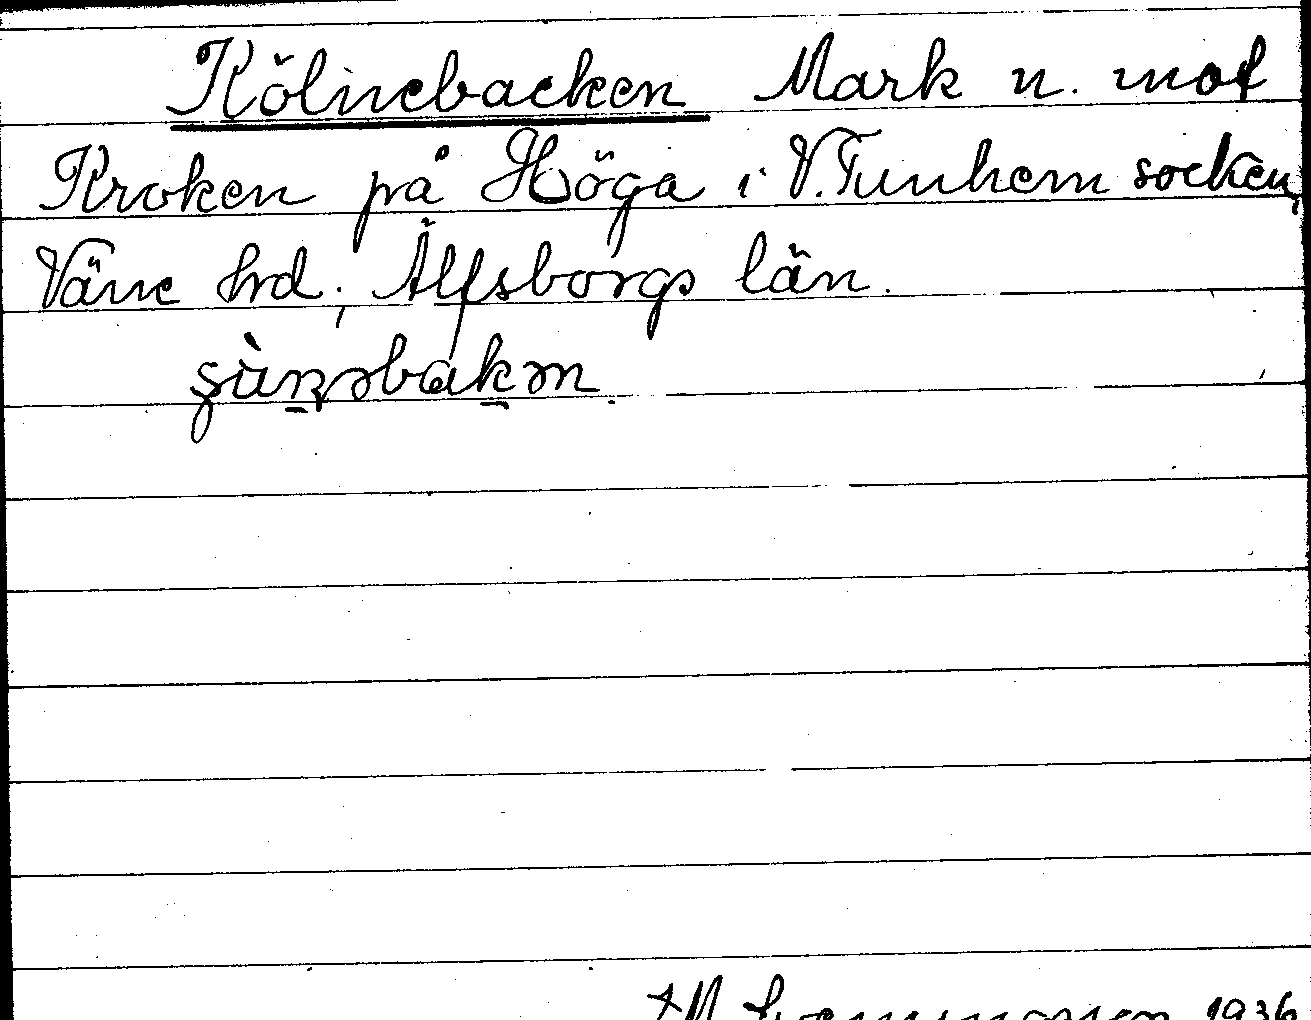 Kölnebacken Mark n. mot
Kroken på Höga i V. Tunhem socken,
Väne hrd; Älfsborgs län.
1936